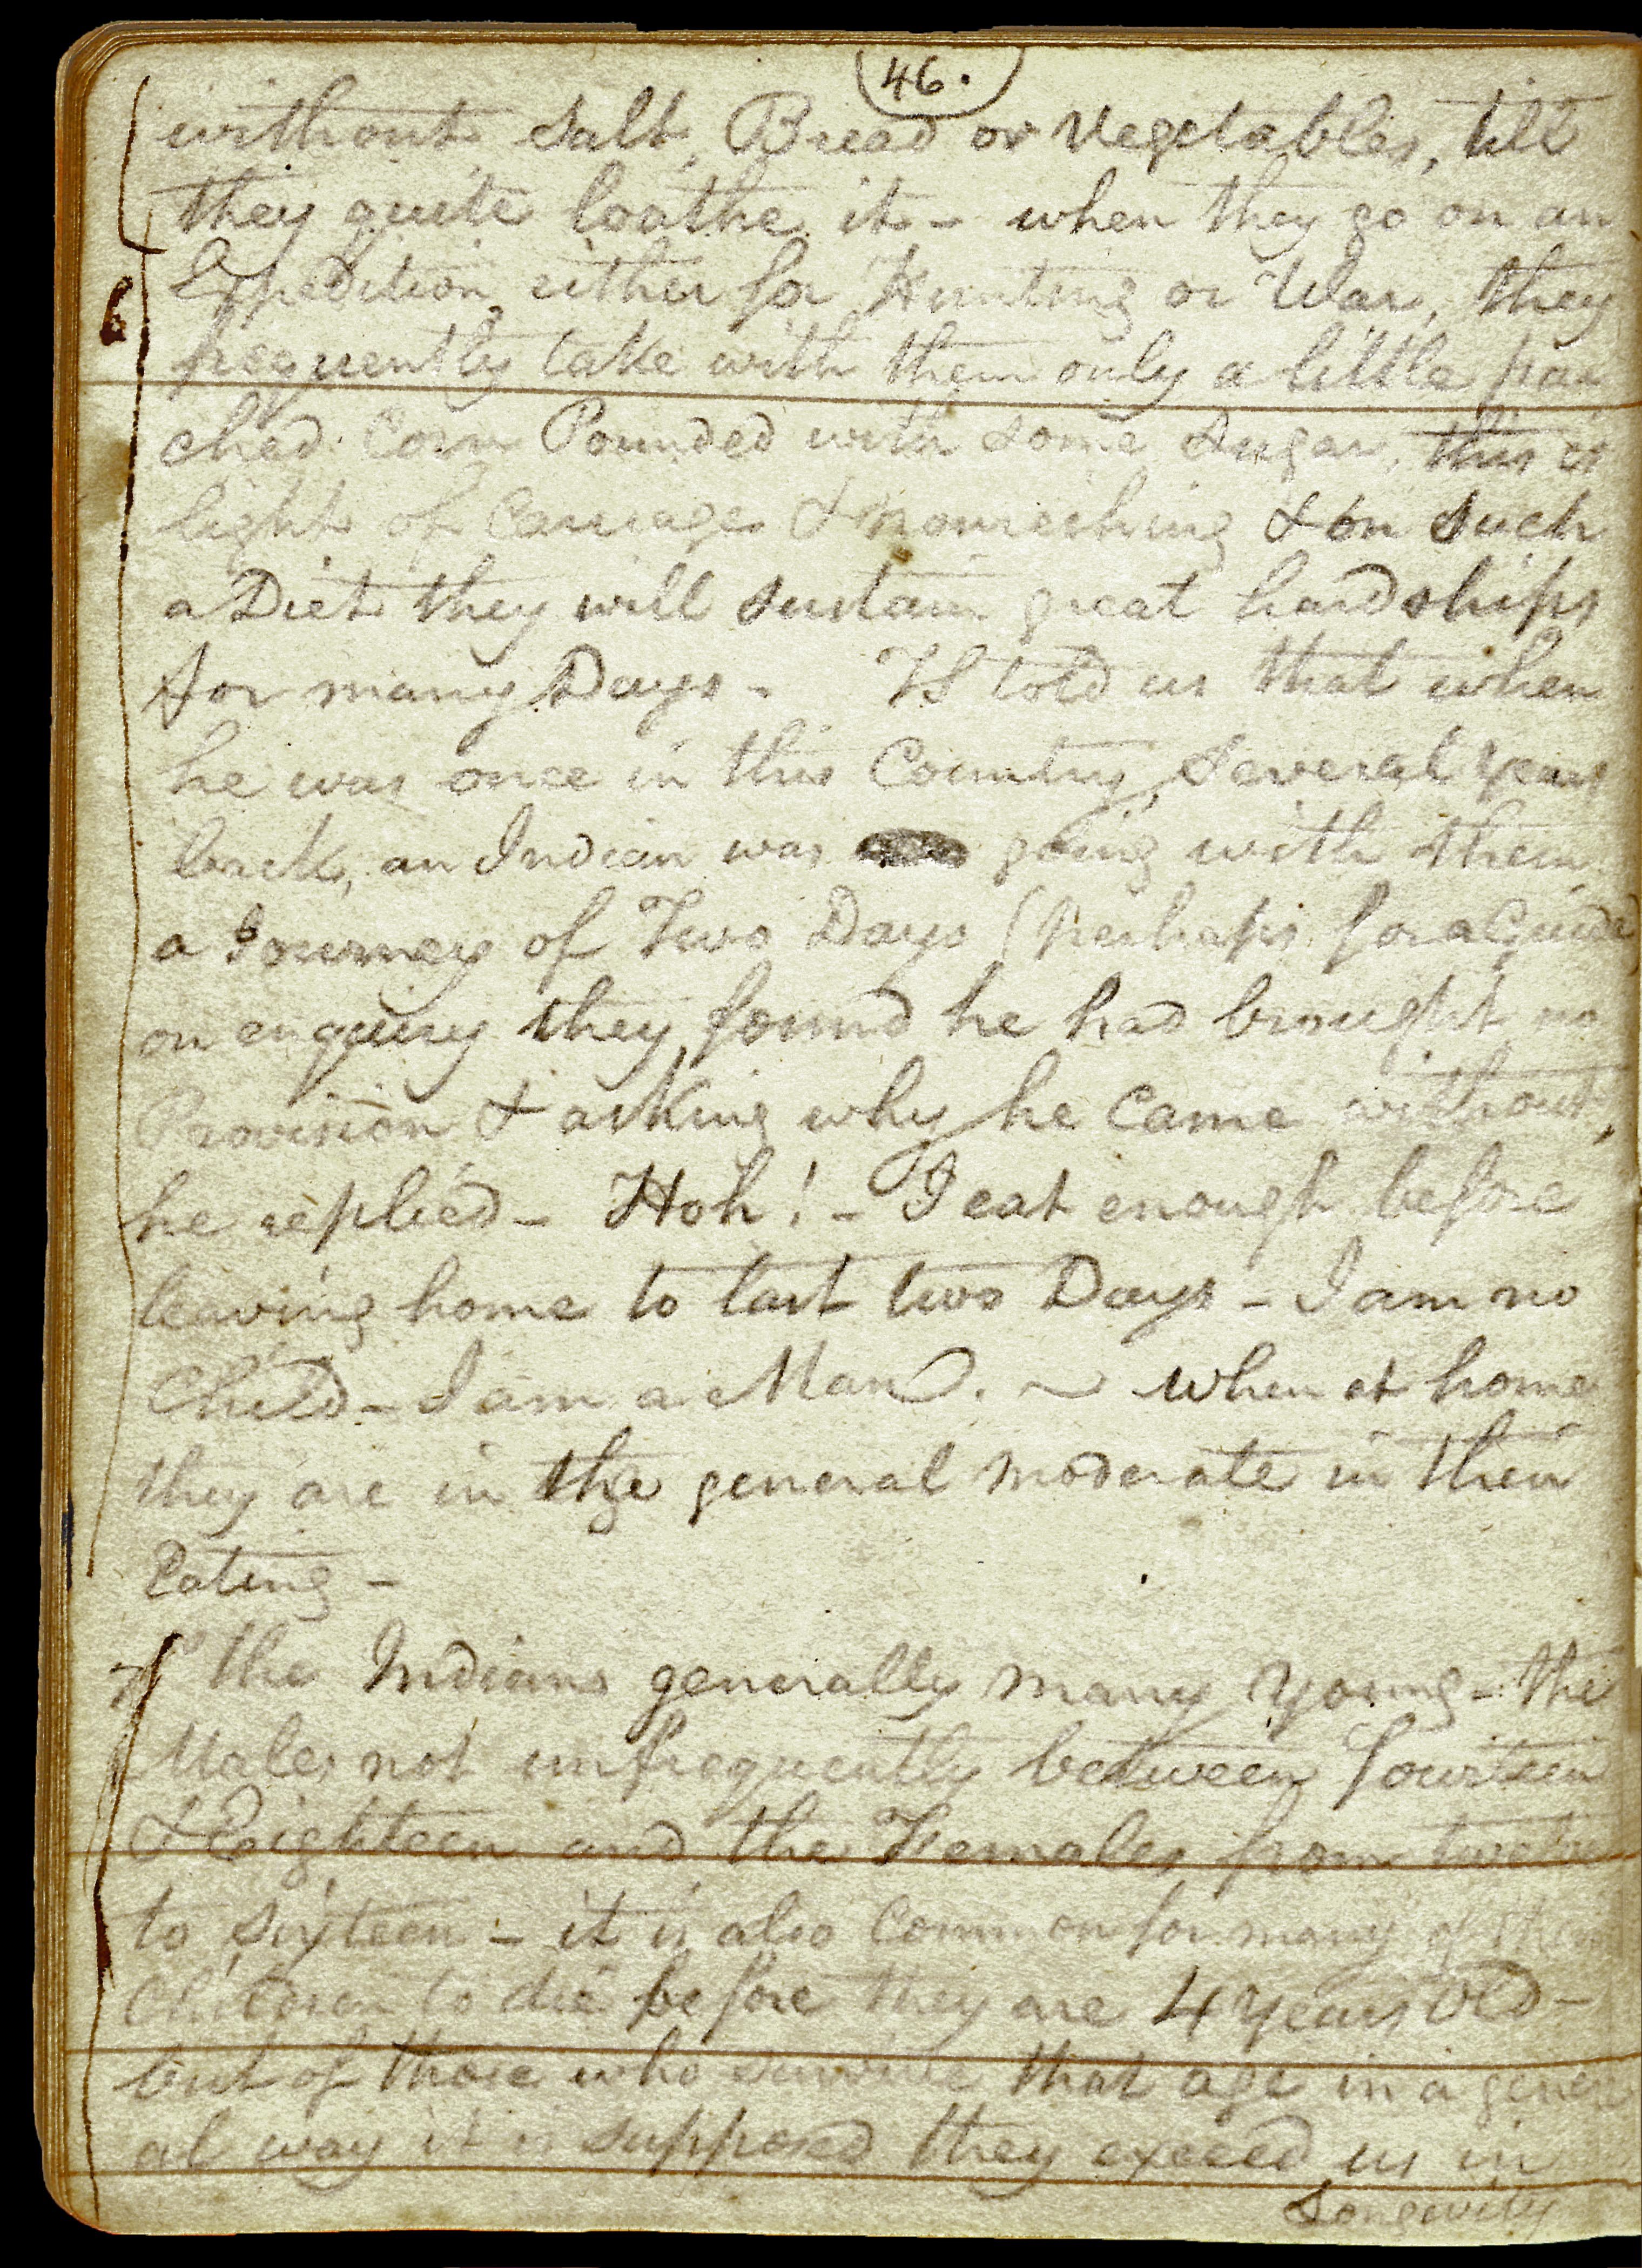 46.
without Salt, Bread or Vegetables, till
they quite loathe it - when they go on an
6 Expedition either for Hunting or War, they
frequently take with them only a little par
ched Corn Pounded with some Sugar, this is
light of Carriage & nourishing & on Such
a Diet they will sustain great hardships
for many Days - IS told us that when
he was once in this Country, Several Years
back, an Indian was going with them
a Journey of Two Days (perhaps for a Guide)
on enquiry they found he had brought no
Provision & asking why he Came without,
he replied - Hoh! - I eat enough before
leaving home to last two Days - I am no
Child - I am a Man. ~ when at home
they are in the general moderate in their
Eating -
7 The Indians generally marry Young - the
Males not unfrequently between fourteen
& Eighteen and the Females from twelve
to Sixteen - it is also Common for many of their
Children to die before they are 4 Years Old -
but of those who survive that age in a gener
al way it is supposed they exceed us in
Longevity